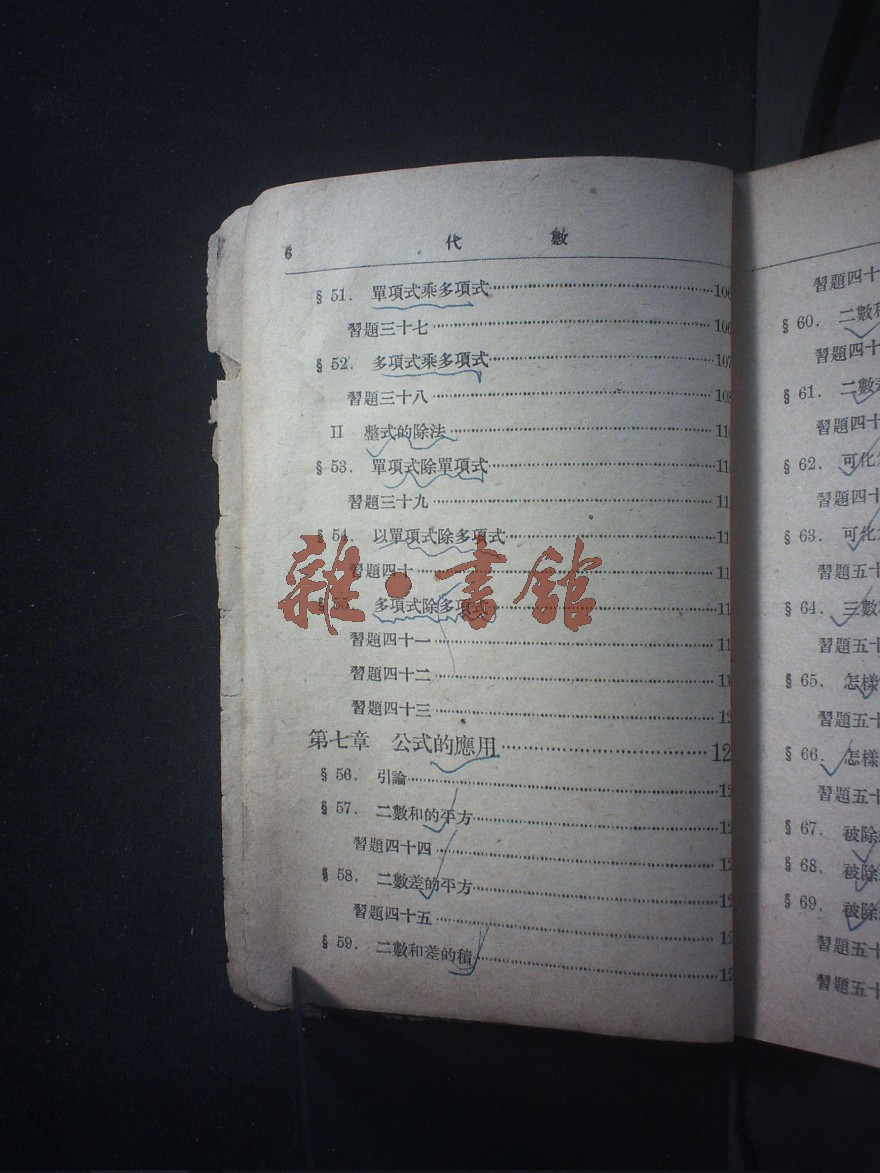 6 代 數
§ 51. 單項式乘多項式 106
習題三十七 106
§ 52. 多項式乘多項式 107
習題三十八 108
II 整式的除法 11
§ 53. 單項式除單項式 11
習題三十九 11
§ 54. 以單項式除多項式 11
習題四十 11
§ 55. 多項式除多項式 11
習題四十一 11
習題四十二 11
習題四十三 12
第七章 公式的應用 12
§ 56. 引論 12
§ 57. 二數和的平方 12
習題四十四 12
§ 58. 二數差的平方 12
習題四十五 12
§ 59. 二數和差的積 12
雜·書館
習題四十
§ 60. 二數
習題四十
§ 61. 二數
習題四十
§ 62. 可化
習題四十
§ 63. 可化
習題五十
§ 64. 三數
習題五十
§ 65. 怎樣
習題五十
§ 66. 怎樣
習題五十
§ 67. 被除
§ 68. 被除
§ 69. 被除
習題五十
習題五十